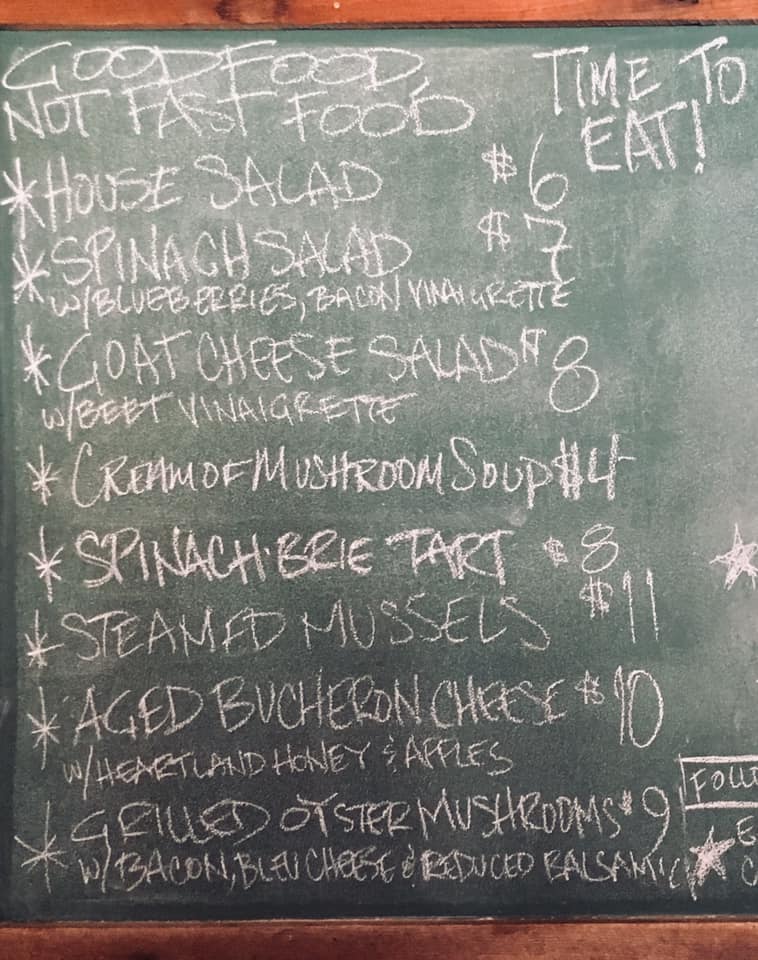 GOOD FOOD,
NOT FAST FOOD
TIME TO
EAT!
*HOUSE SALAD $6
*SPINACH SALAD $7
W/BLUEBERRIES, BACON VINAIGRETTE
*GOAT CHEESE SALAD $8
W/BEET VINAIGRETTE
*CREAM OF MUSHROOM SOUP $4
*SPINACH·BRIE TART $8
*STEAMED MUSSELS $11
*AGED BUCHERON CHEESE $10
W/HEARTLAND HONEY & APPLES
*GRILLED OYSTER MUSHROOMS $9
W/BACON, BLEU CHEESE & REDUCED BALSAMIC
FOLL
E
C